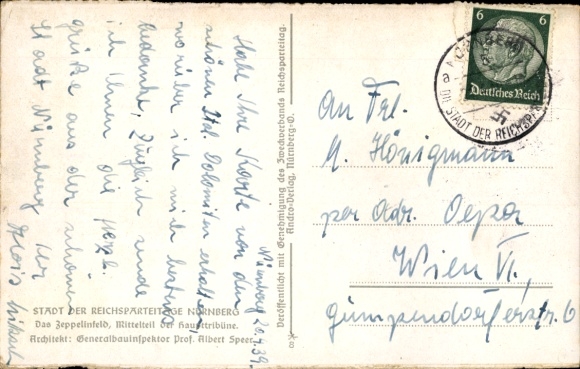 Nürnberg 20.4.39.
Habe Ihre Karte von den
schönen Süd. Dolomiten erhalten,
worüber ich mich bestens
bedanke. Zugleich sende
ich Ihnen die herzl.
Grüße aus der schönen
Stadt Nürnberg Ihr
Alois
STADT DER REICHSPARTEITAGE NÜRNBERG
Das Zeppelinfeld, Mittelteil der Haupttribüne.
Architekt: Generalbauinspektor Prof. Albert Speer
Veröffentlicht mit Genehmigung des Zweckverbands Reichsparteitag.
Andro-Verlag, Nürnberg-O.
6 6
Deutsches Reich
NÜRNBERG
a
DIE STADT DER REICHSPARTEI
An Frl.
M. Hönigmann
per Adr. Oepa
Wien VI,
Gumpendorferstr. 6